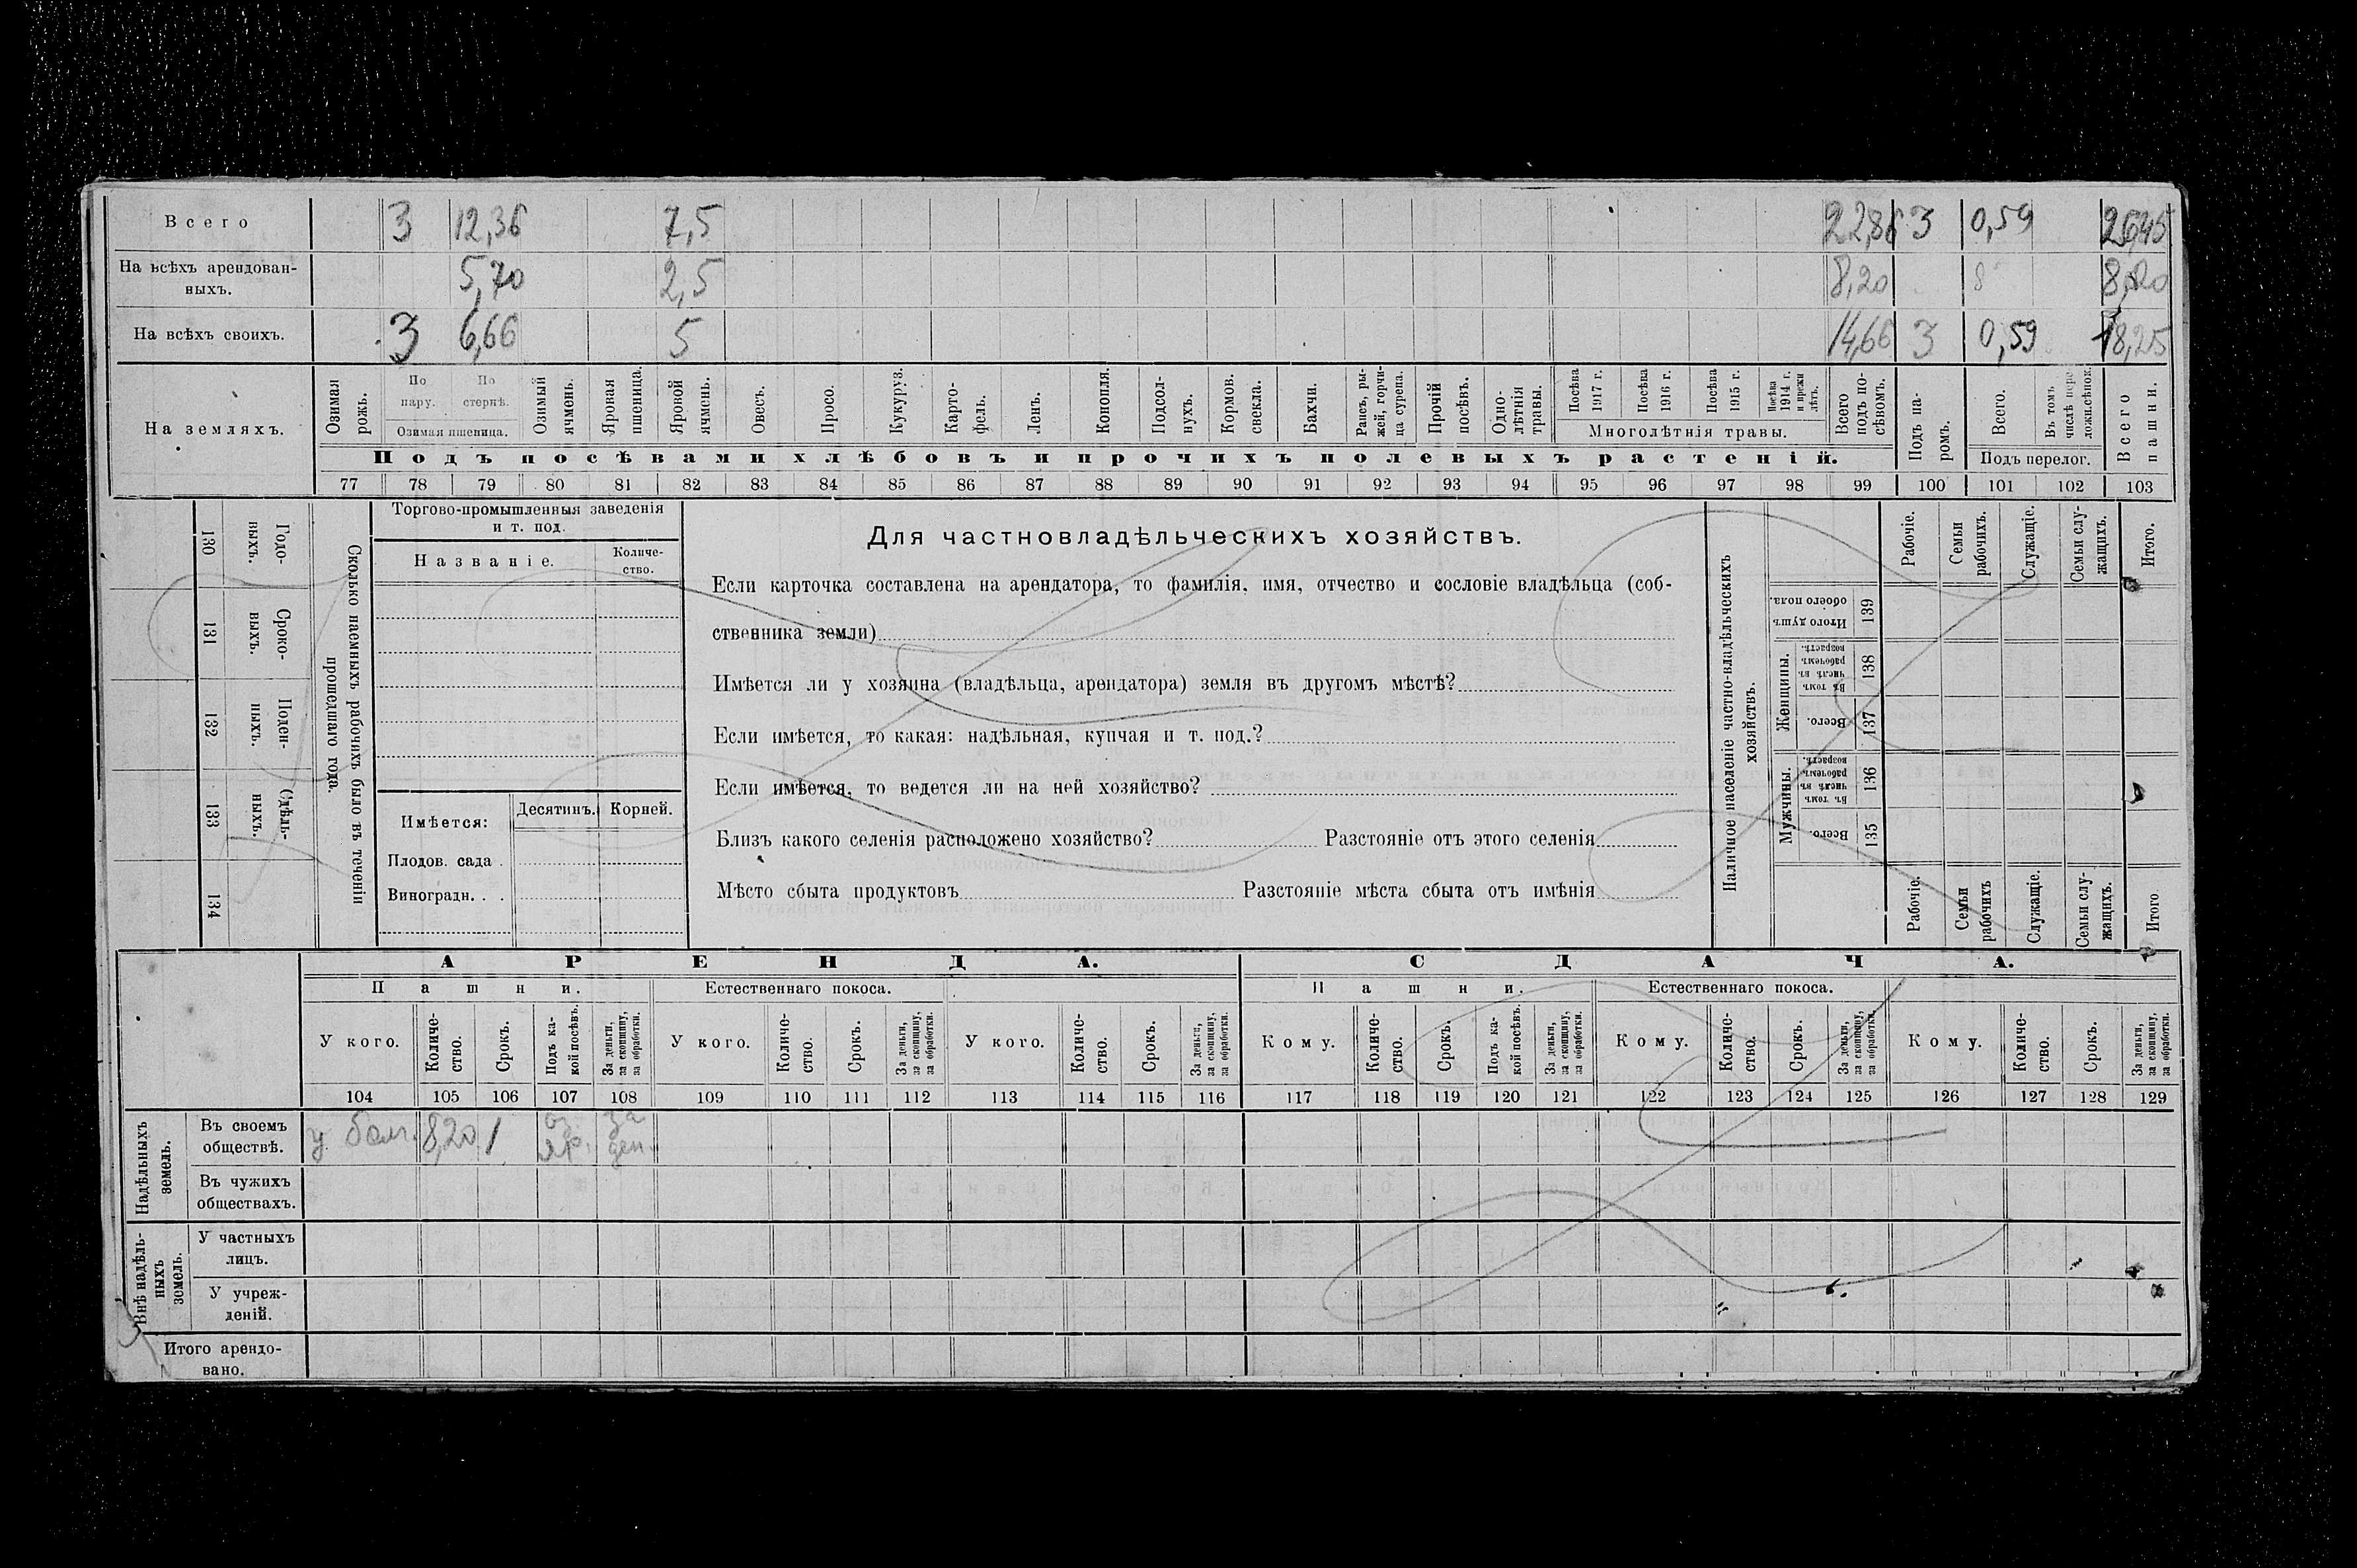 Всего 3 12,36 7,5 22,86 3 0,59 26,45
На всѣхъ арендован-
ныхъ. 5,70 2,5 8,20 8,20
На всѣхъ своихъ. 3 6,66 5 14,66 3 0,59 18,25
На земляхъ.
Озимая рожь.
По пару.
По стернѣ.
Озимая пшеница.
Озимый ячмень.
Яровая пшеница.
Яровой ячмень.
Овесъ.
Просо.
Кукуруз.
Карто-
фель.
Ленъ.
Конопля.
Подсол-
нухъ.
Кормов.
свекла.
Бахчи.
Рапсъ, ры-
жей, горчи-
ца сурепа.
Прочій
посѣвъ.
Одно-
лѣтнія
травы.
Посѣва
1917 г.
Посѣва
1916 г.
Посѣва
1915 г.
Посѣва
1914 г.
и прежн
лѣтъ.
Многолѣтнія травы.
Всего
подъ по-
сѣвомъ.
Подъ па-
ромъ.
Всего.
Въ томъ
числѣ пере-
ложн.сѣнок.
Подъ перелог.
Всего
пашни.
Подъ посѣвами хлѣбовъ и прочихъ полевыхъ растеній.
77 78 79 80 81 82 83 84 85 86 87 88 89 90 91 92 93 94 95 96 97 98 99 100 101 102 103
130 Годо-
выхъ.
131 Сроко-
выхъ.
132 Поден-
ныхъ.
133 Сдѣль-
ныхъ.
134
Сколько наемныхъ рабочихъ было въ теченіи
прошедшаго года.
Торгово-промышленныя заведенія
и т. под.
Названіе.
Количе-
ство.
Имѣется:
Десятинъ.
Корней.
Плодов. сада .
Виноградн. . .
Для частновладѣльческихъ хозяйствъ.
Если карточка составлена на арендатора, то фамилія, имя, отчество и сословіе владѣльца (соб-
ственника земли)
Имѣется ли у хозяина (владѣльца, арендатора) земля въ другомъ мѣстѣ?
Если имѣется, то какая: надѣльная, купчая и т. под.?
Если имѣется, то ведется ли на ней хозяйство?
Близъ какого селенія расположено хозяйство? Разстояніе отъ этого селенія
Мѣсто сбыта продуктовъ Разстояніе мѣста сбыта отъ имѣнія
Наличное населеніе частно-владѣльческихъ
хозяйствъ.
Рабочіе.
Семьи
рабочихъ.
Служащіе.
Семьи слу-
жащихъ.
Итого.
Итого душъ
обоего пола.
139
Женщины.
Въ томъ
числѣ въ
рабочемъ
возрастѣ.
138
Всего.
137
Мужчины.
Въ томъ
числѣ въ
рабочемъ
возрастѣ.
136
Всего.
135
Рабочіе.
Семьи
рабочихъ
Служащіе.
Семьи слу-
жащихъ.
Итого
АРЕНДА. СДАЧА.
Пашни. Естественнаго покоса. Пашни. Естественнаго покоса.
У кого.
Количе-
ство.
Срокъ.
Подъ ка-
кой посѣвъ.
За деньги,
за скопщину,
за обработки.
У кого.
Количе-
ство.
Срокъ.
За деньги,
за скопщину,
за обработки.
У кого.
Количе-
ство.
Срокъ.
За деньги,
за скопщину,
за обработки.
Кому.
Количе-
ство.
Срокъ.
Подъ ка-
кой посѣвъ.
За деньги,
за скопщину,
за обработки.
Кому.
Количе-
ство.
Срокъ.
За деньги,
за скопщину,
за обработки.
Кому.
Количе-
ство.
Срокъ.
За деньги,
за скопщину,
за обработки.
104 105 106 107 108 109 110 111 112 113 114 115 116 117 118 119 120 121 122 123 124 125 126 127 128 129
Надѣльныхъ
земель.
Въ своемъ
обществѣ. у 8,20 1 оз за
яр. ден.
Въ чужихъ
обществахъ.
Внѣ надѣль-
ныхъ
земель.
У частныхъ
лицъ.
У учреж-
деній.
Итого арендо-
вано.